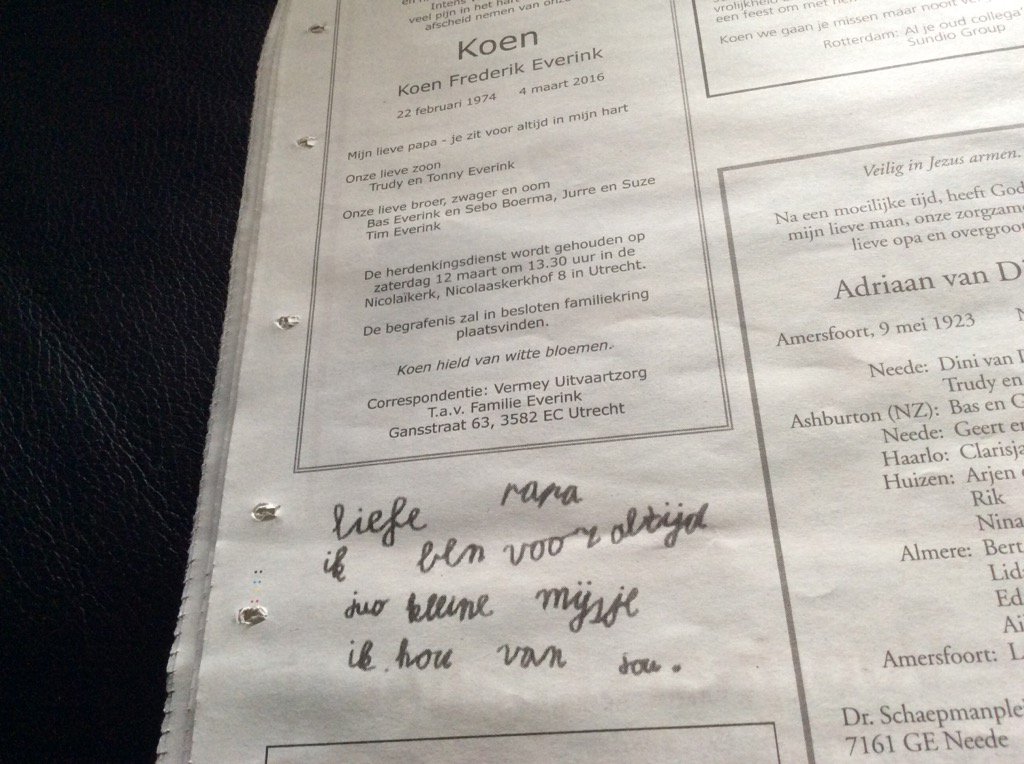 Intens
veel pijn in het har
afscheid nemen van onz
Koen
Koen Frederik Everink
22 februari 1974 4 maart 2016
Mijn lieve papa - je zit voor altijd in mijn hart
Onze lieve zoon
Trudy en Tonny Everink
Onze lieve broer, zwager en oom
Bas Everink en Sebo Boerma, Jurre en Suze
Tim Everink
De herdenkingsdienst wordt gehouden op
zaterdag 12 maart om 13.30 uur in de
Nicolaïkerk, Nicolaaskerkhof 8 in Utrecht.
De begrafenis zal in besloten familiekring
plaatsvinden.
Koen hield van witte bloemen.
Correspondentie: Vermey Uitvaartzorg
T.a.v. Familie Everink
Gansstraat 63, 3582 EC Utrecht
liefe papa
ik ben voor altijd
juo kleine mijsje
ik hou van jou.
vrolijkheid
een feest om met
Koen we gaan je missen maar nooit
Rotterdam: Al je oud collega'
Sundio Group
Veilig in Jezus armen.
Na een moeilijke tijd, heeft God
mijn lieve man, onze zorgzam
lieve opa en overgroo
Adriaan van D
Amersfoort, 9 mei 1923 N
Neede: Dini van D
Trudy en
Ashburton (NZ): Bas en G
Neede: Geert en
Haarlo: Clarisja
Huizen: Arjen
Rik
Nina
Almere: Bert
Lid
Ed
Ai
Amersfoort: L
Dr. Schaepmanple
7161 GE Neede